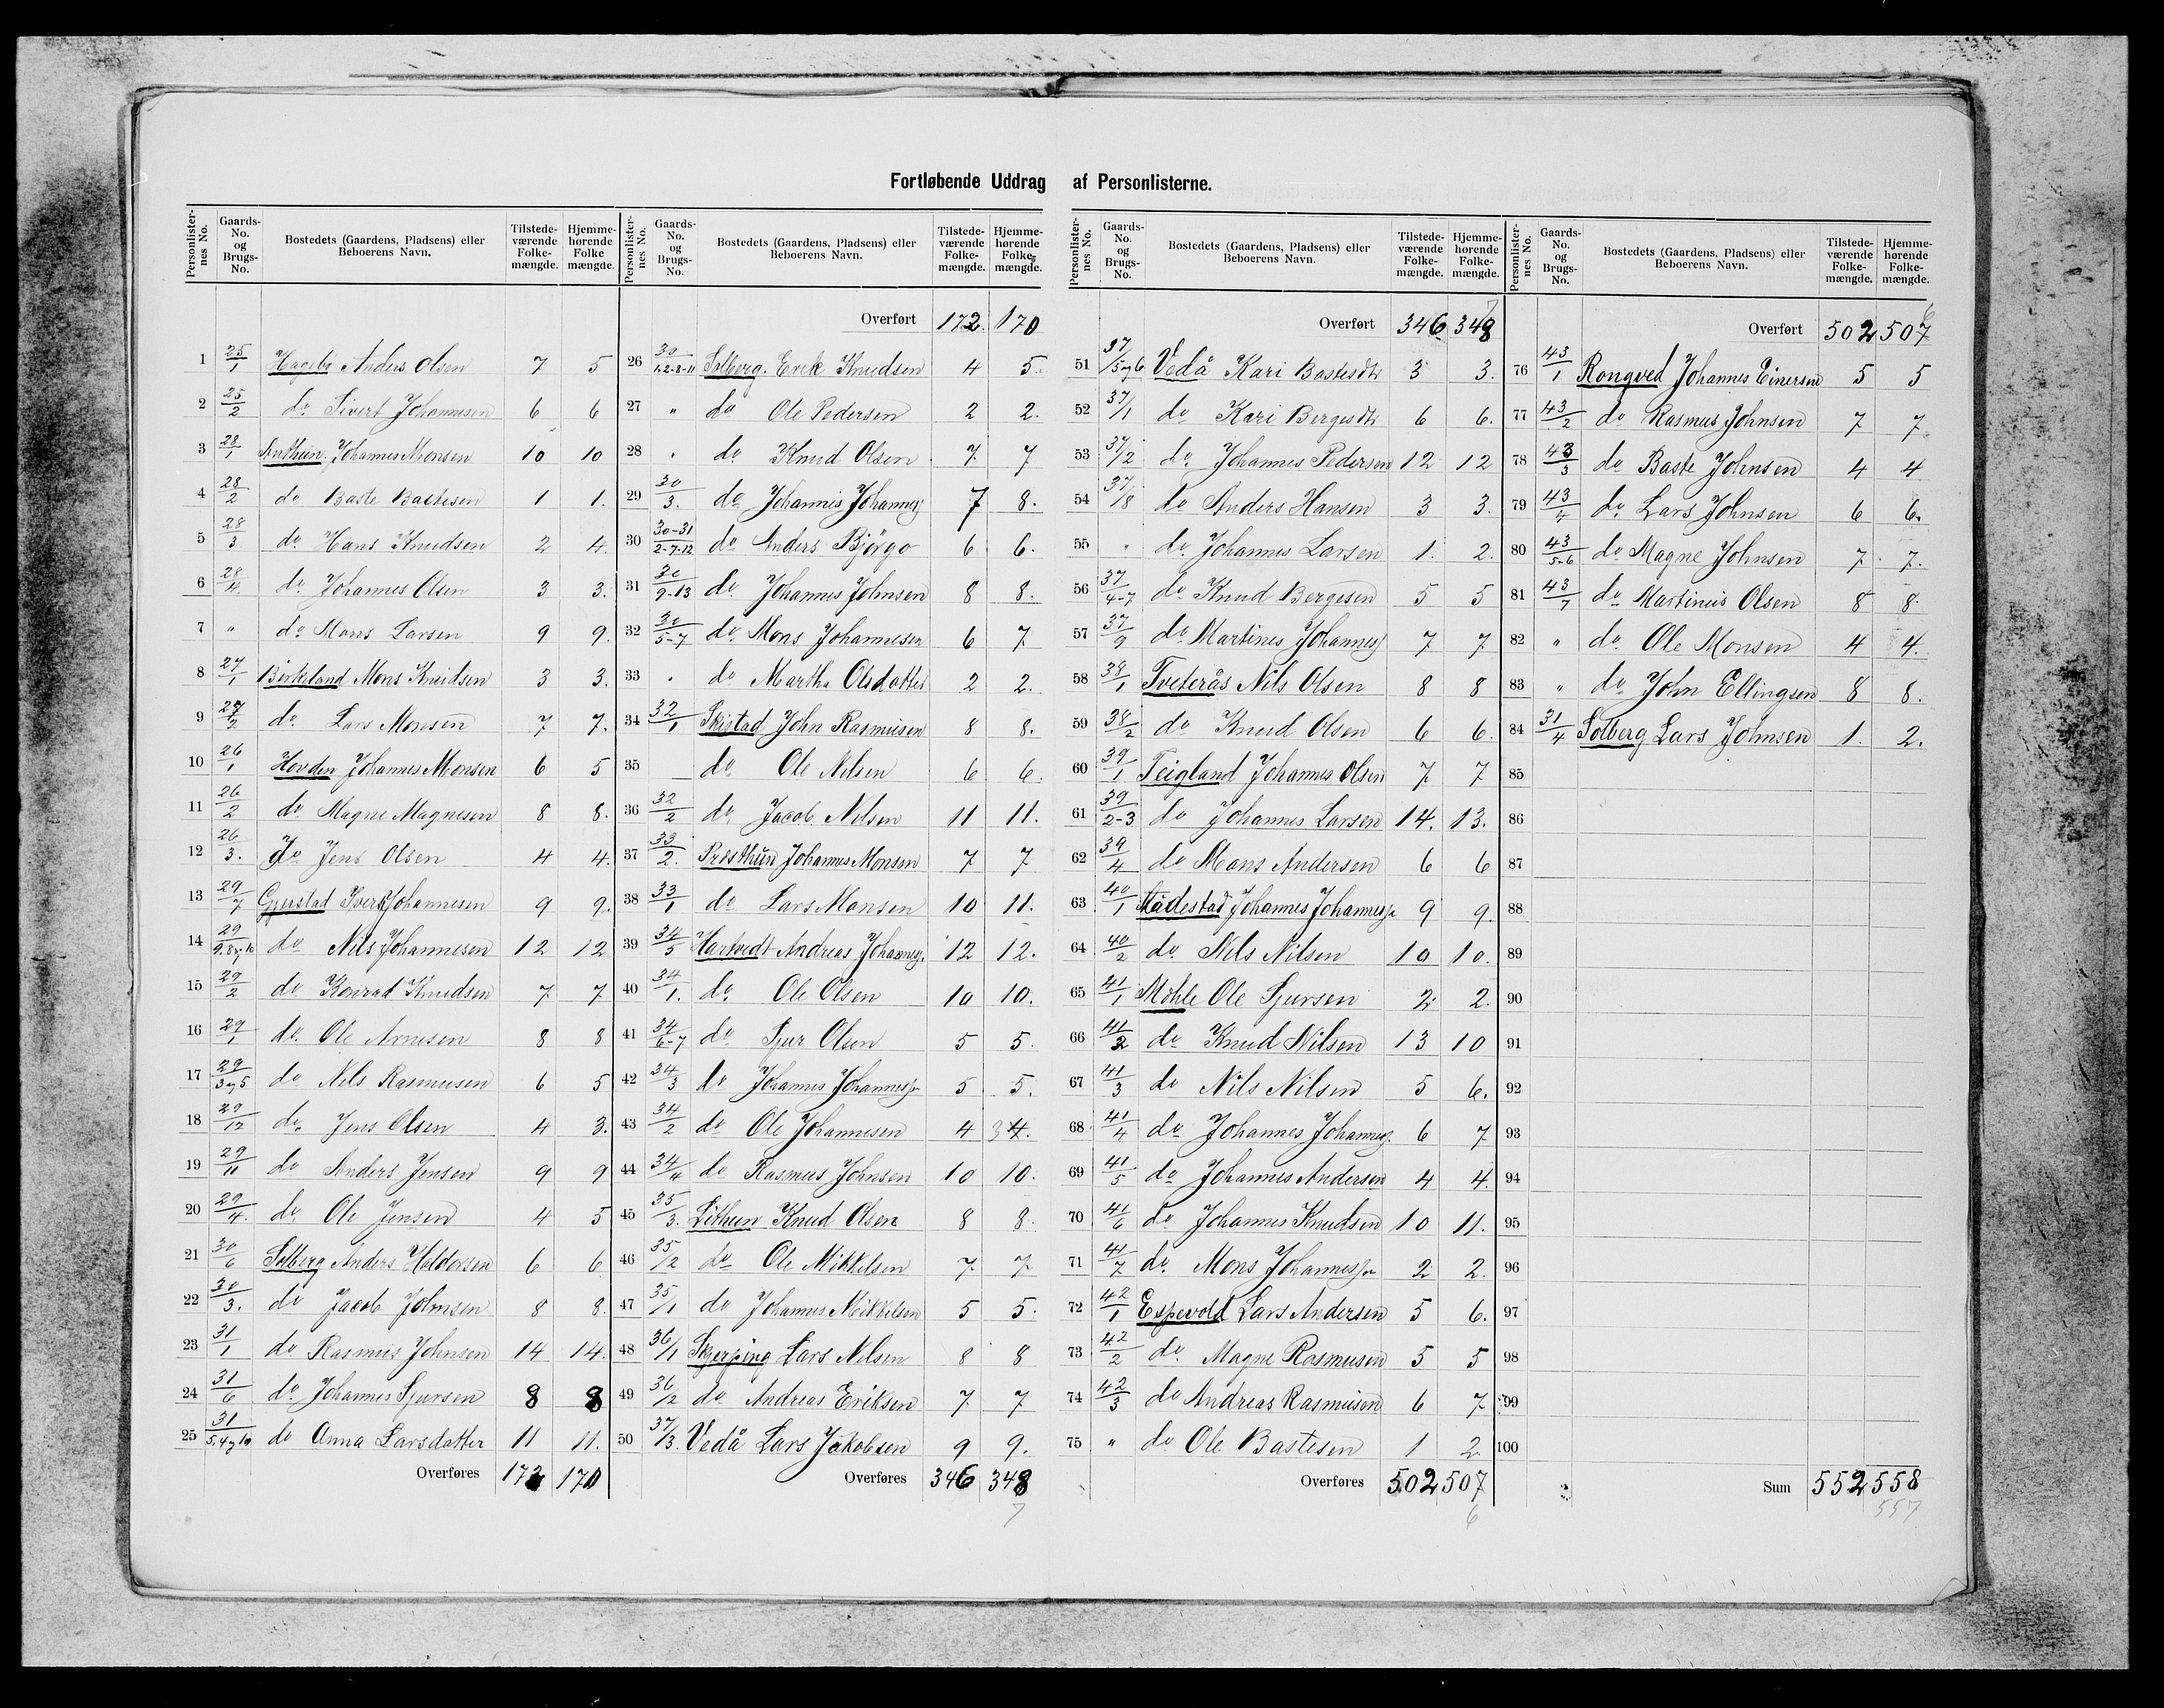 Fortløbende Uddrag af Personlisterne.
Personlister-nes No. Gaards-No. og Brugs-No. Bostedets (Gaardens, Pladsens) eller Beboerens Navn. Tilstede-værende Folke-mængde. Hjemme-hørende Folke mængde.
1 25/1 Hageb Anders Olsen 7 5
2 25/2 do Sivert Johannesen 6 6
3 28/1 Anthun. Johannes Monsen 10 10
4 28/2 do Baste Bastesen 1 1.
5 28/3 do Hans Knudsen 2 4.
6 28/4. do Johannes Olsen 3 3.
7 " do Mons Larsen 9 9.
8 27/1 Birkeland Mons Knudsen 3 3.
9 27/2 do Lars Monsen 7 7.
10 26/1 Hovden Johannes Monsen 6 5
11 26/2 do Magne Magnesen 8 8.
12 26/3. do Jens Olsen 4 4.
13 29/7 Gjerstad Iver Johannesen 9 9.
14 29/9.8og10 do Nils Johannesen 12 12
15 29/2 do Konrad Knudsen 7 7
16 29/1 do. Ole Arnesen 8 8
17 29/3og5 do Nils Rasmusen 6 5
18 29/12 do. Jens Olsen 4 3.
19 29/11 do Anders Jensen 9 9
20 29/4. do Ole Jensen 4 5
21 30/6 Solberg Anders Haldorsen 6 6
22 30/3. do Jacob Johnsen 8 8.
23 31/1 do Rasmus Johnsen 14 14.
24 31/6 do Johannes Sjursen 8 8
25 31/5,4og10 do Anna Larsdatter 11 11.
Overføres 172 170
Personlister-nes No. Gaards-No. og Brugs-No. Bostedets (Gaardens, Pladsens) eller Beboerens Navn. Tilstede-værende Folke-mængde. Hjemme-hørende Folke-mængde.
Overført 172. 170
26 30/1.2-8-11 Solberg. Erik Knudsen 4 5.
27 " do Ole Pedersen 2 2.
28 " do Knud Olsen 7. 7
29 30/3. do Johannes Johannes 7 8.
30 30-31/2-7-12 do Anders Bjørgo 6 6.
31 30/9-13 do. Johannes Johnsen 8 8.
32 30/5-7 do. Mons Johannesen 6 7.
33 " do Martha Olsdatter 2 2.
34 32/1 Skistad John Rasmusen 8 8.
35 do Ole Nilsen 6 6.
36 32/2 do. Jacob Nilsen 11 11.
37 33/2. Presthun Johannes Monsen 7 7
38 33/1 do Lars Monsen 10 11.
39 34/5 Hartvedt Andreas Johannes. 12 12.
40 34/1. do. Ole Olsen 10 10.
41 34/6-7 do Sjur Olsen 5 5.
42 34/3 do Johannes Johannes 5 5.
43 34/2 do Ole Johannesen 4 3 4.
44 34/4 do Rasmus Johnsen 10 10.
45 35/3. Lithun Knud Olsen 8 8.
46 35/2 do Ole Mikkelsen 7. 7.
47 35/1 do Johannes Mikkelsen 5 5.
48 36/1 Skjerping Lars Nilsen 8 8
49 36/2 do Andreas Eriksen 7. 7
50 37/13. Vedå Lars Jakobsen 9 9.
Overføres 346 348
7
Personlister-nes No. Gaards-No. og Brugs-No. Bostedets (Gaardens, Pladsens) eller Beboerens Navn. Tilstede-værende Folke-mængde. Hjemme-hørende Folke-mængde.
Overført 346 348 7
51 37/5og6 Vedå Kari Bastesdtr 3 3.
52 37/1 do Kari Bergesdtr 6 6.
53 37/2 do. Johannes Pedersen 12 12
54 37/8 do Anders Hansen 3 3.
55 " do Johannes Larsen 1. 2.
56 37/4-7 do Knud Bergesen 5 5
57 37/9 do Martines Johannes 7 7
58 38/1 Tveterås Nils Olsen 8 8
59 38/2 do Knud Olsen 6 6.
60 39/1 Teigland Johannes Olsen 7. 7
61 39/2-3 do Johannes Larsen 14. 13.
62 39/4 do Mons Andersen 6 6
63 40/1 Mådestad Johannes Johannes 9 9.
64 40/2 do. Nils Nilsen 10 10.
65 41/1 Møhle Ole Sjursen 2 2.
66 41/2 do Knud Nilsen 13 10
67 41/3 do Nils Nilsen 5 6.
68 41/4 do Johannes Johannes. 6 7
69 41/5 do Johannes Andersen 4 4.
70 41/6 do Johannes Knudsen 10 11.
71 41/7 do. Mons Johannes 2 2.
72 42/1 Espevold Lars Andersen 5 6.
73 42/2 do. Magne Rasmusen 5 5
74 42/3 do Andreas Rasmusen 6 7
75 " do Ole Bastesen 1 2.
Overføres 502 507
6
Personlister-nes No. Gaards-No. og Brugs-No. Bostedets (Gaardens, Pladsens) eller Beboerens Navn. Tilstede-værende Folke-mængde. Hjemme-hørende Folke-mængde.
Overført 502 507 6
76 43/1 Rongved Johannes Einersen 5 5
77 43/2 do Rasmus Johnsen 7 7.
78 43/3 do Baste Johnsen 4 4
79 43/4 do. Lars Johnsen 6 6.
80 43/5-6 do Magne Johnsen 7. 7.
81 43/7 do Martinus Olsen 8 8.
82 " do Ole Monsen 4 4.
83 " do John Ellingsen 8 8.
84 31/4 Solberg Lars Johnsen 1. 2.
85
86
87
88
89
90
91
92
93
94
95
96
97
98
99
100
Sum 552 558
557